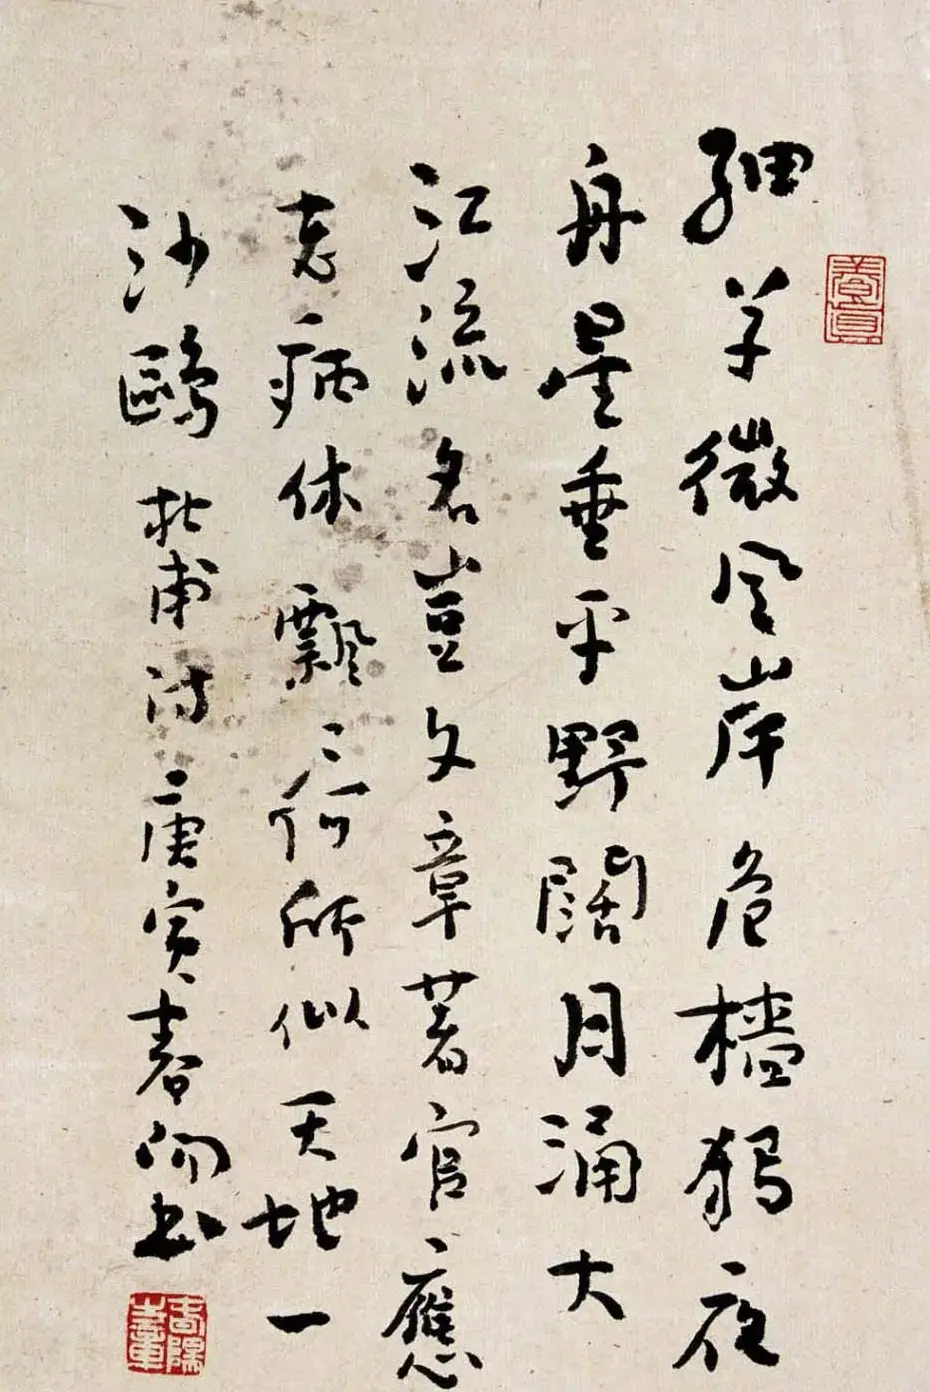 細草微風岸危檣獨夜
舟星垂平野闊月涌大
江流名豈文章著官應
老病休飄〻何所似天地一
沙鷗 杜甫詩 庚寅春 書